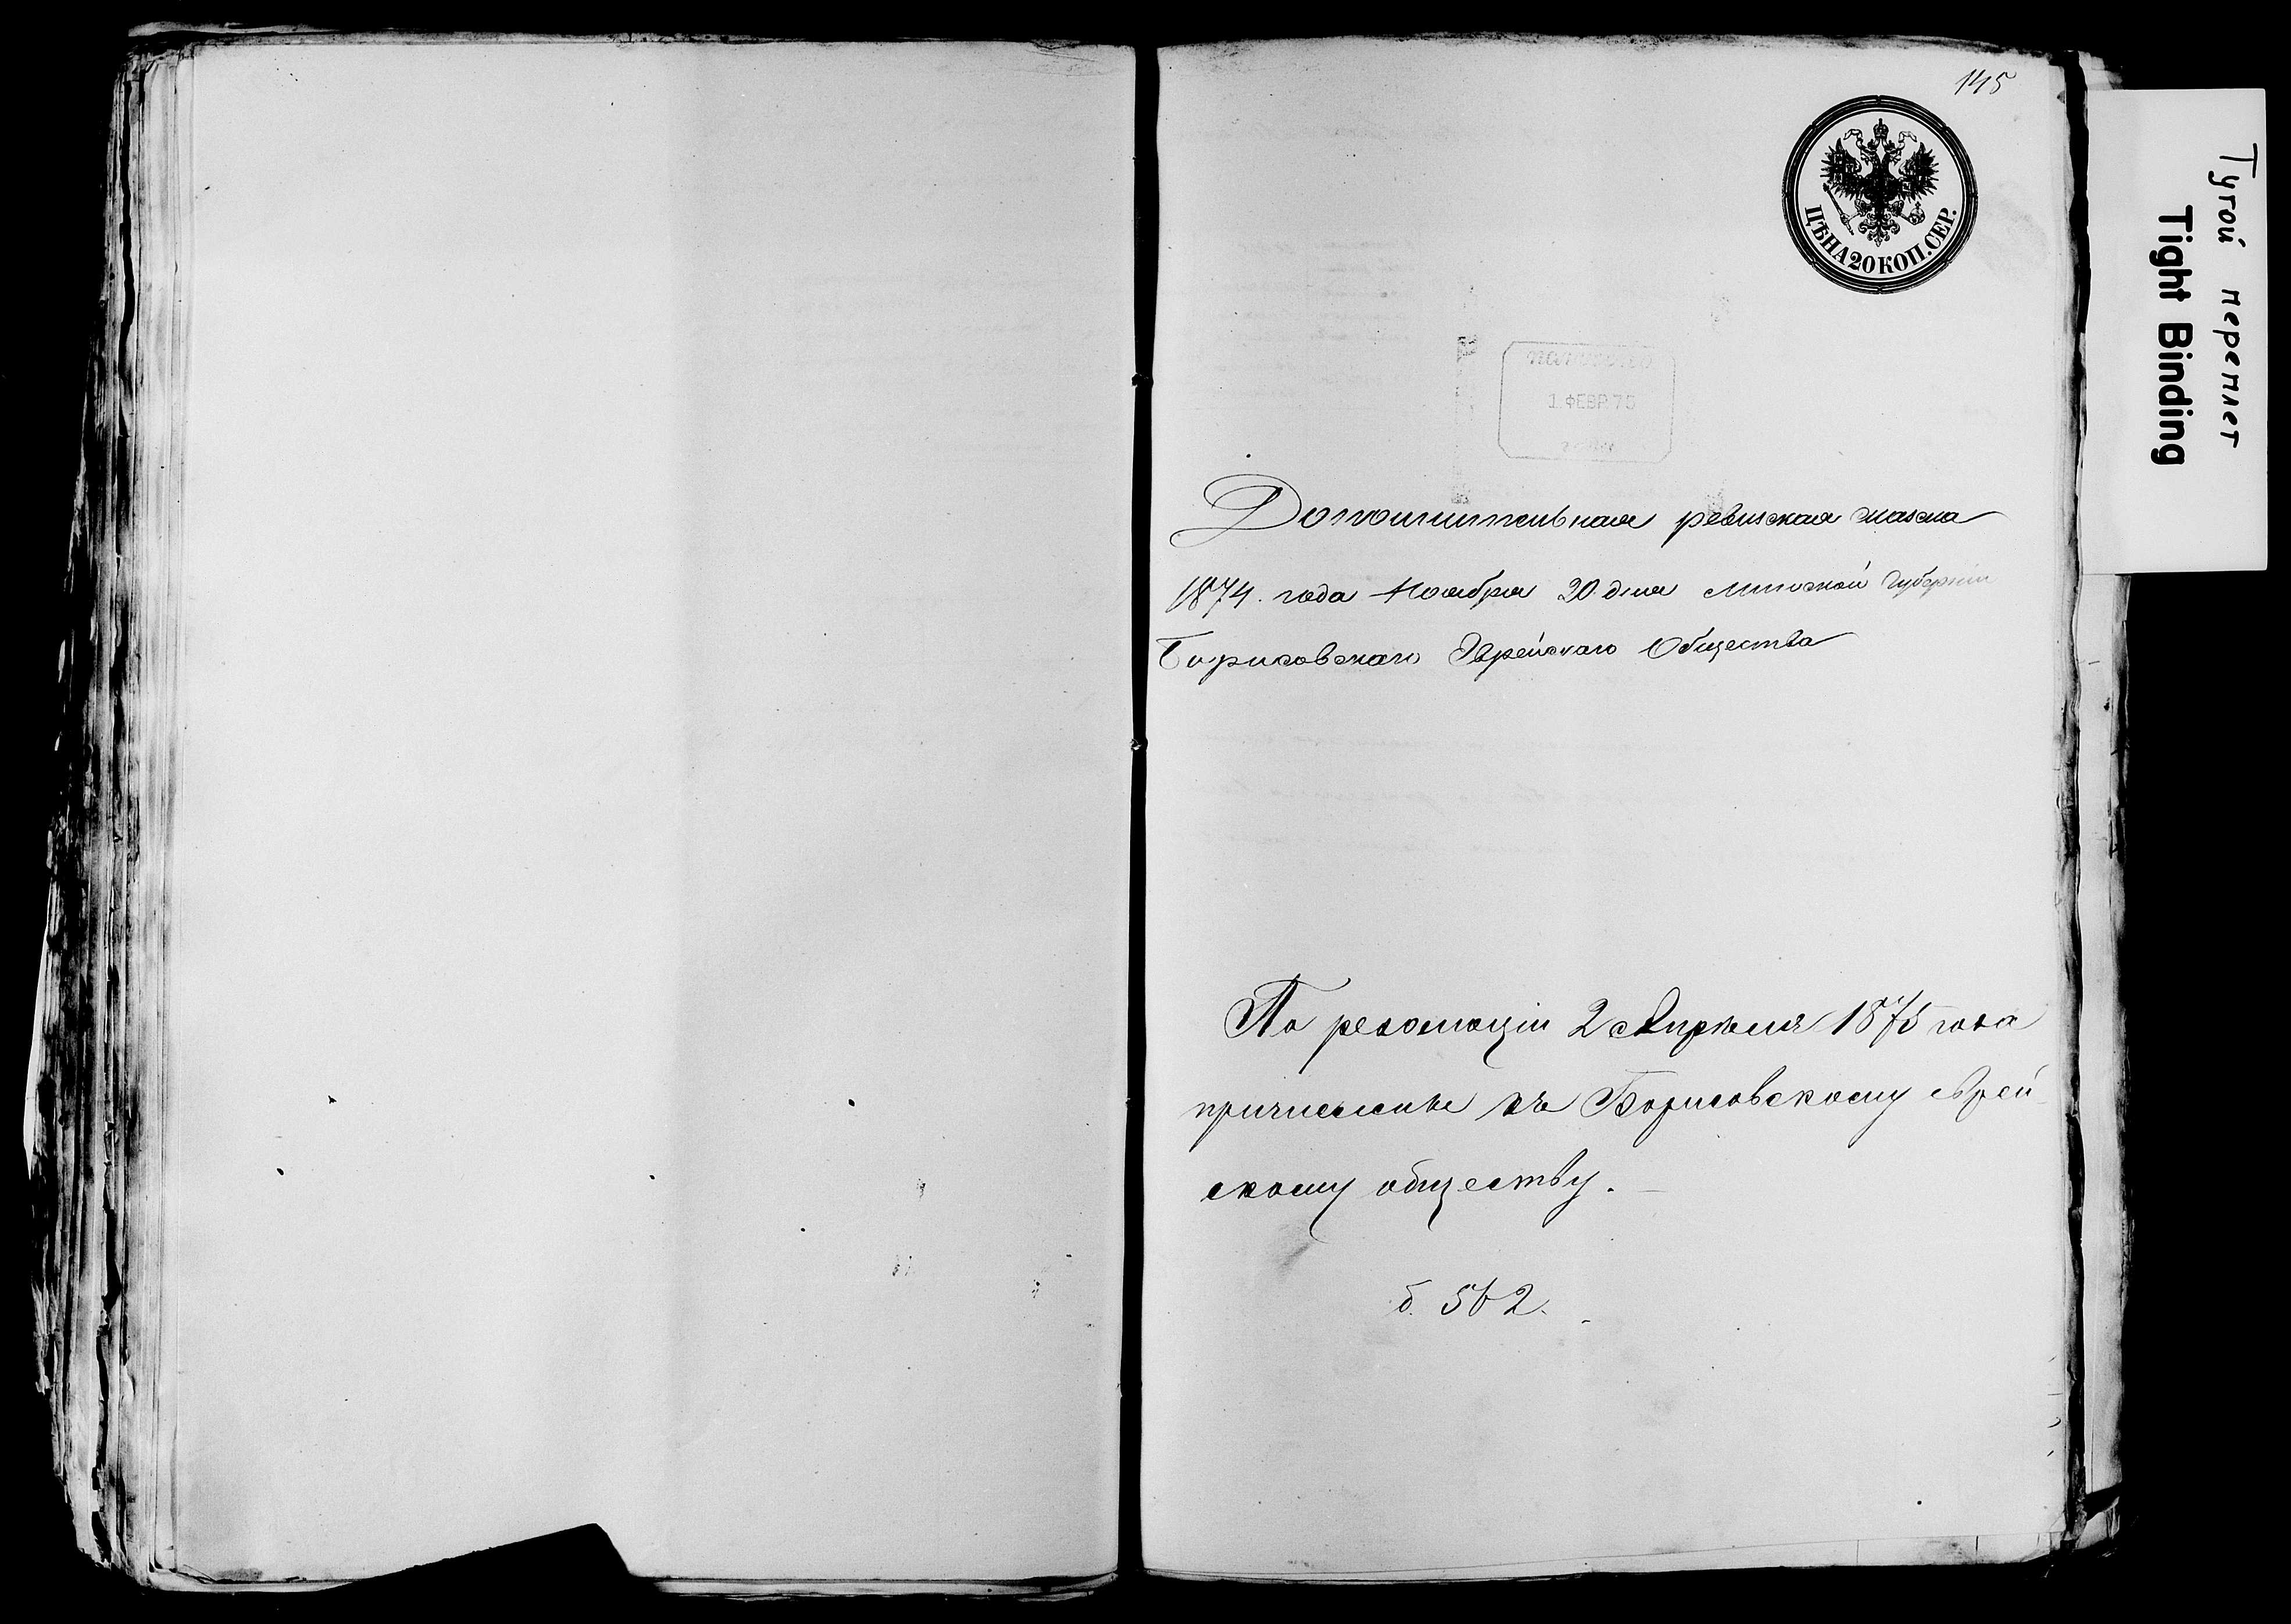 145
ЦѢНА 20 КОП. СЕР.
1 ФЕВР 75
Дополнительная ревизская сказка
1874. года Ноября 20 дня Минской Губерніи
Борисовскаго Еврейскаго Общества
По резолюціи 2 Апрѣля 1875 года
причислены къ Борисовскому еврей
скому обществу.
б. 562.
Тугой переплет
Tight Binding